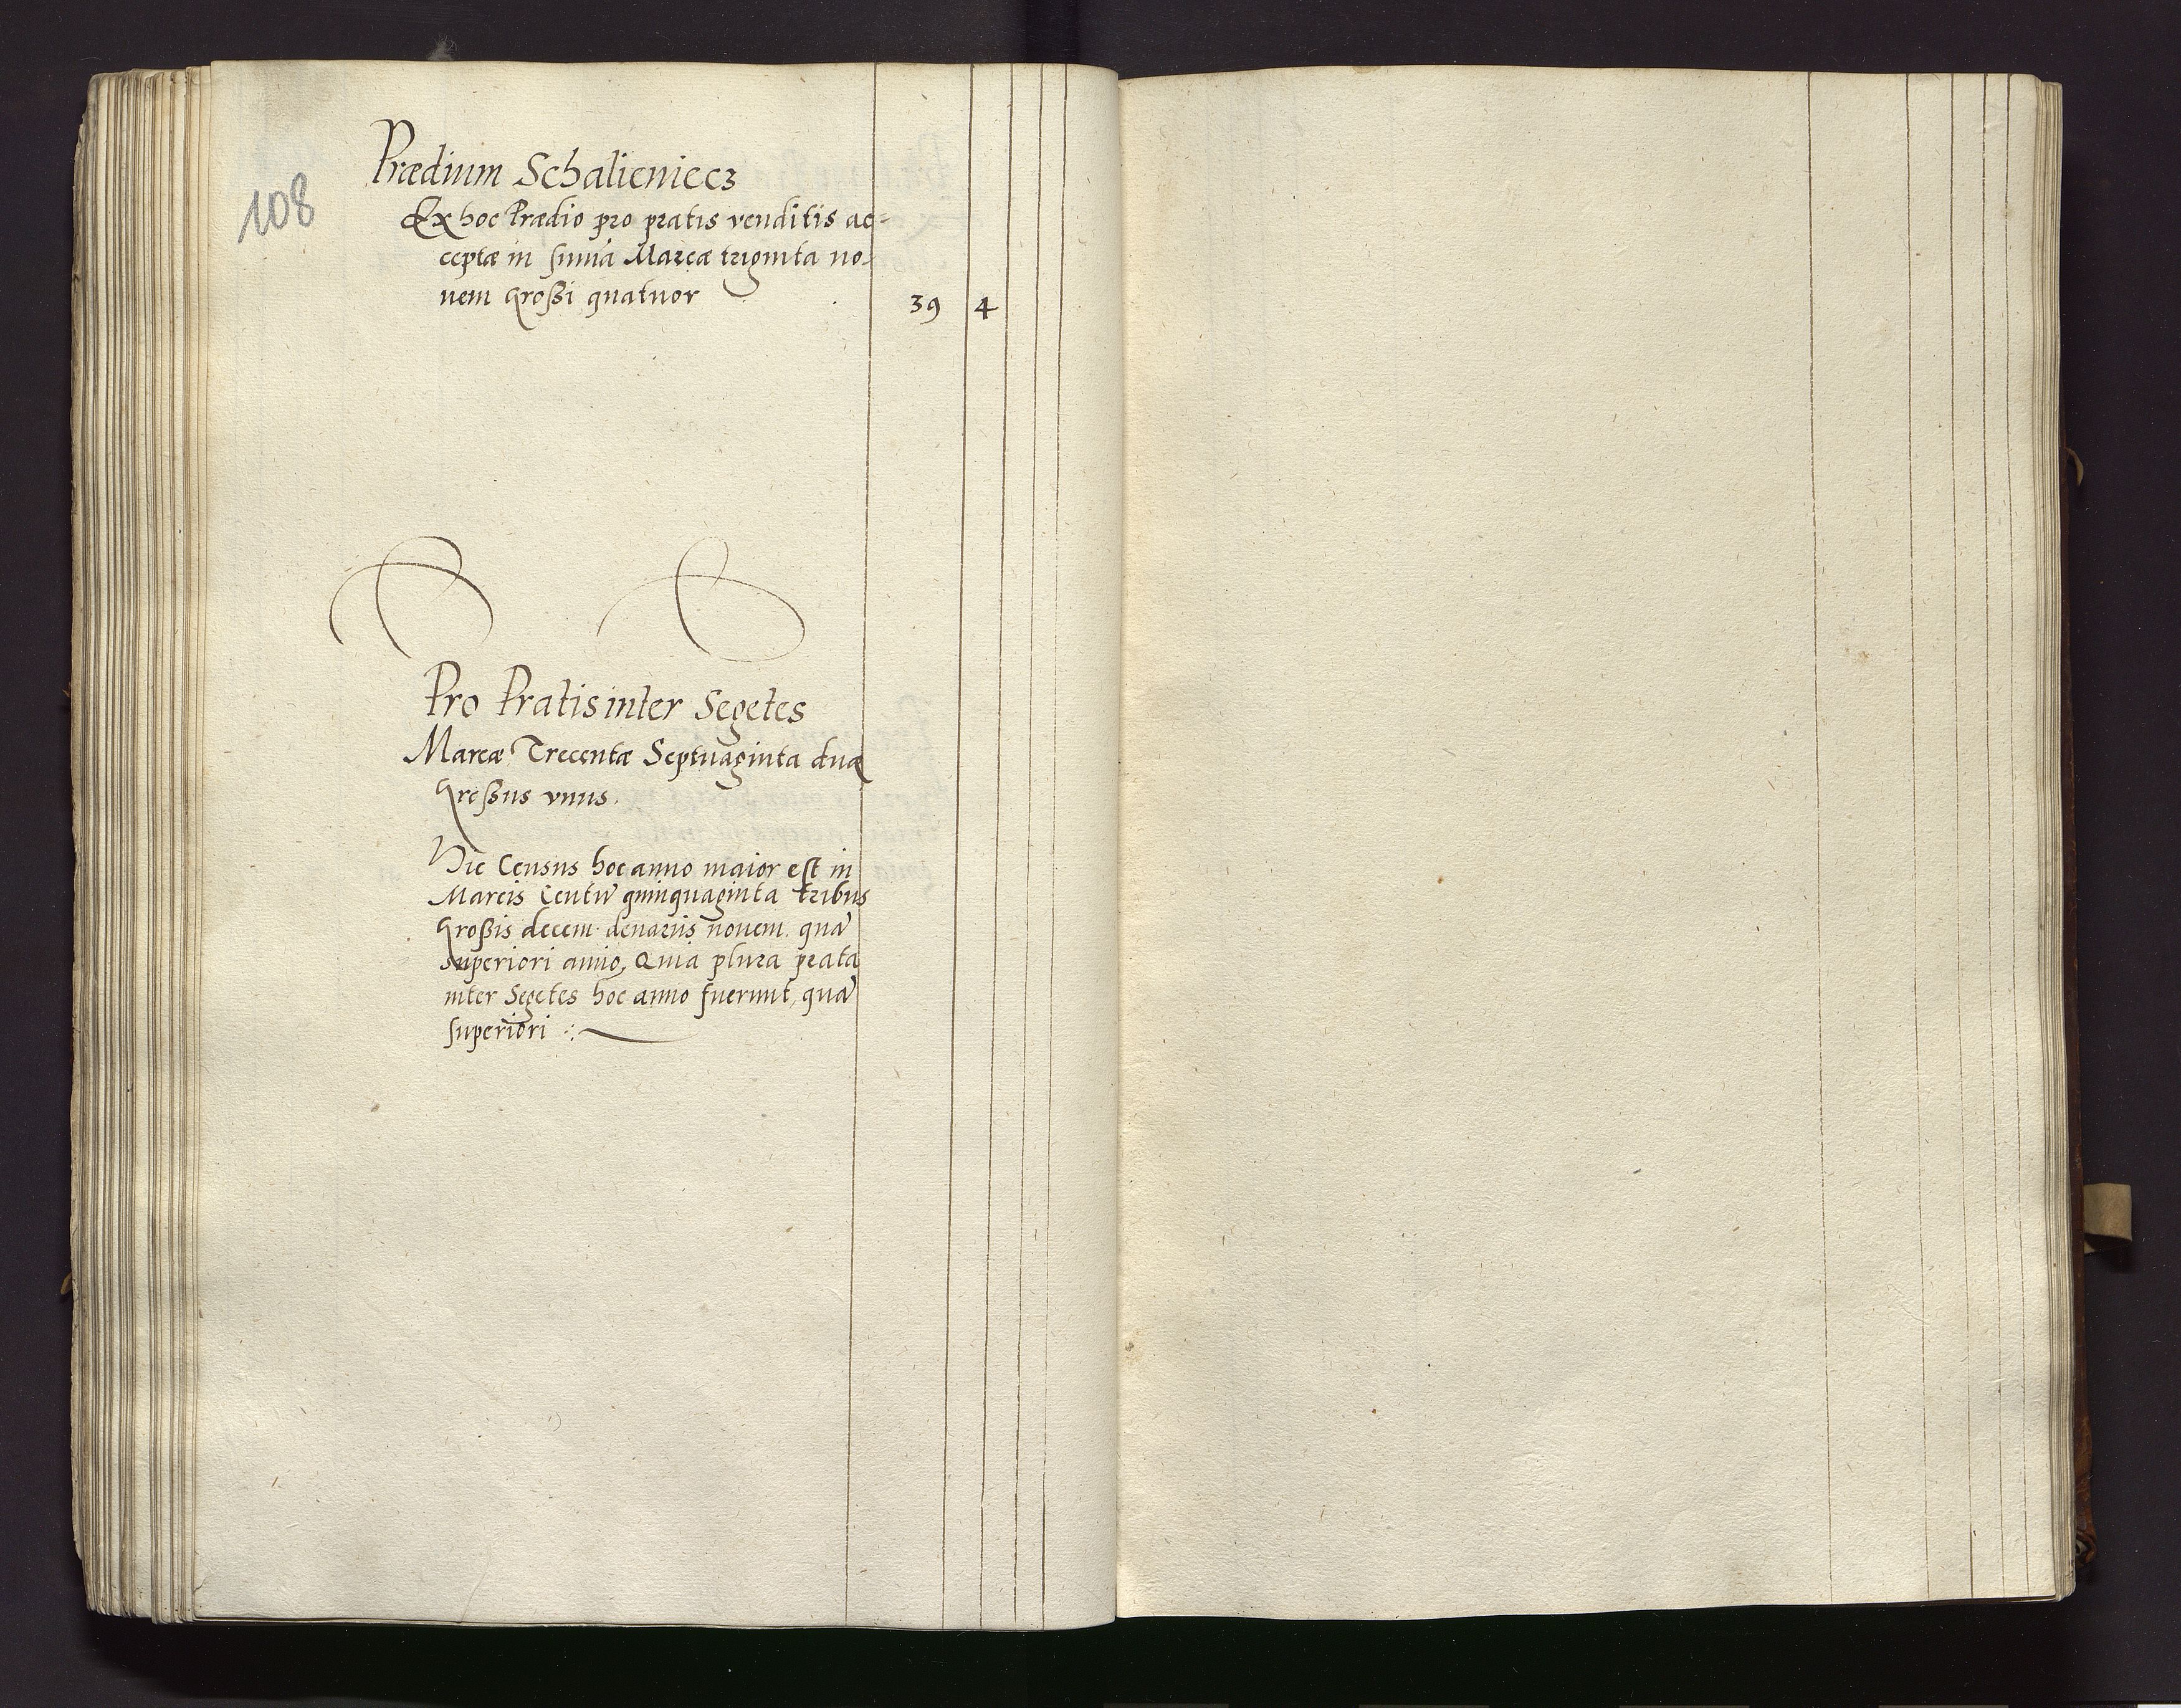 108
Prædium Schalieniecz
Ex hoc Prædio pro pratis venditis ac=
ceptæ in sum̃a Marcæ triginta no-
uem Großi quatuor 39 4
Pro Pratis inter Segetes
Marcæ Trecentæ Septuaginta duæ
Großus vnus.
Hic Census hoc anno maior est in
Marcis Centũ quinquaginta tribus
Großis decem denariis nouem. quã
superiori anno, Quia plura prata
inter Segetes hoc anno fuerunt, quã
superiori